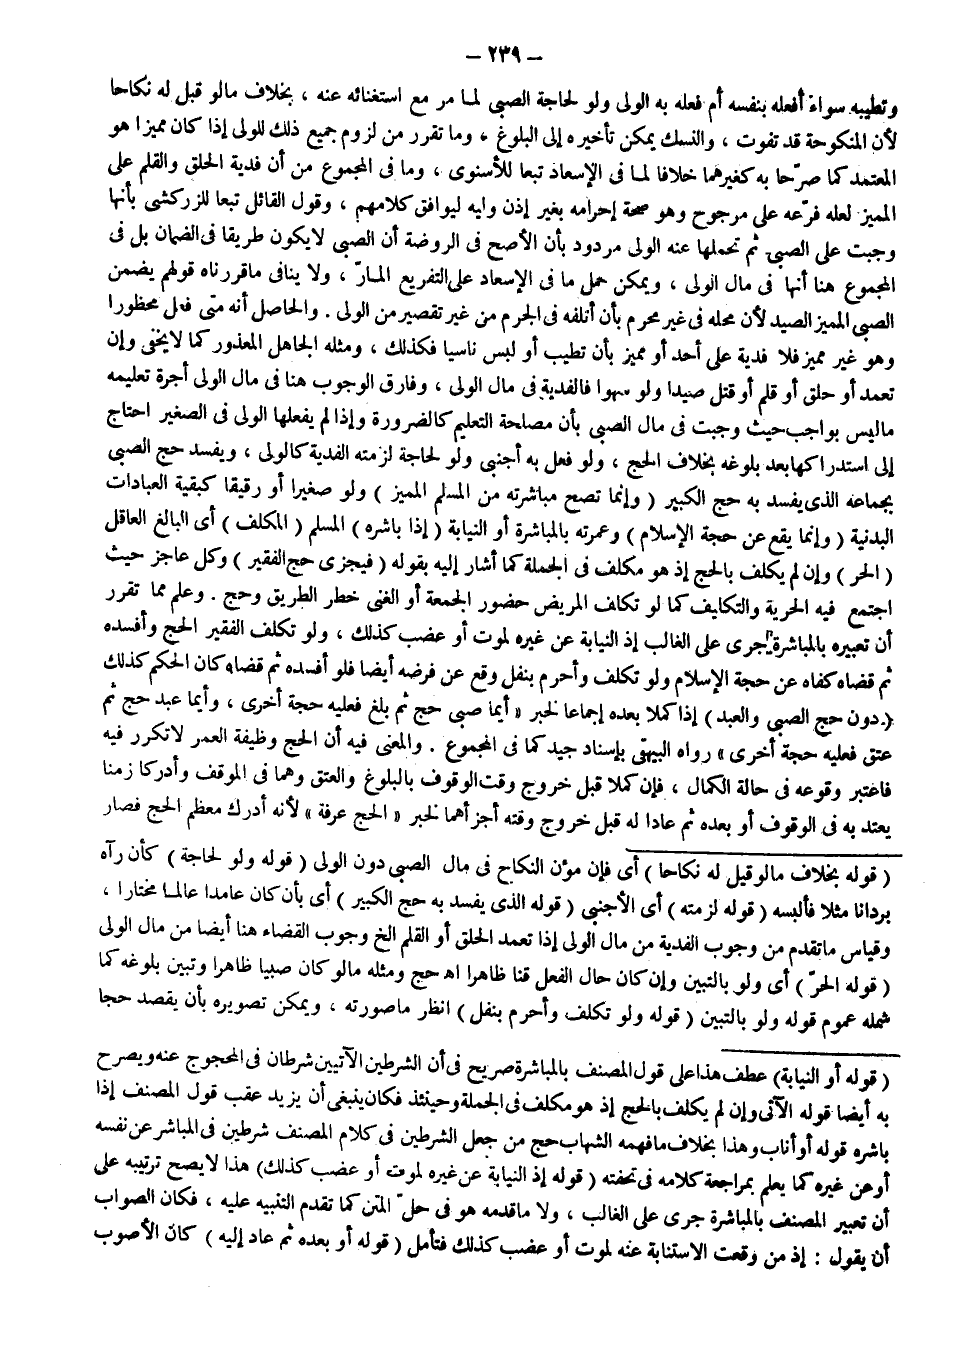 – ٢٣٩ –
وتطييبه سواء أفعله بنفسه أم فعله به الولى ولو لحاجة الصبى لمـا مر مع استغنائه عنه ، بخلاف مالو قبل له نكاحا
لأن المنكوحة قد تفوت ، والنسك يمكن تأخيره إلى البلوغ ، وما تقرر من لزوم جميع ذلك للولى إذا كان مميزا هو
المعتمد كما صرّحا به كغيرهما خلافا لمـا فى الإسعاد تبعا للأسنوى ، وما فى المجموع من أن فدية الحلق والقلم على
المميز لعله فرّعه على مرجوح وهو صحة إحرامه بغير إذن وليه ليوافق كلامهم ، وقول القائل تبعا للزركشى بأنها
وجبت على الصبى ثم تحملها عنه الولى مردود بأن الأصح فى الروضة أن الصبى لايكون طريقا فى الضمان بل فى
المجموع هنا أنها فى مال الولى ، ويمكن حمل ما فى الإسعاد على التفريع المـارّ ، ولا ينافى ماقررناه قولهم يضمن
الصبى المميز الصيد لأن محله فى غير محرم بأن أتلفه فى الحرم من غير تقصير من الولى . والحاصل أنه متى فعل محظورا
وهو غير مميز فلا فدية على أحد أو مميز بأن تطيب أو لبس ناسيا فكذلك ، ومثله الجاهل المعذور كما لايخفى وإن
تعمد أو حلق أو قلم أو قتل صيدا ولو سهوا فالفدية فى مال الولى ، وفارق الوجوب هنا فى مال الولى أجرة تعليمه
ماليس بواجب حيث وجبت فى مال الصبى بأن مصلحة التعليم كالضرورة وإذا لم يفعلها الولى فى الصغير احتاج
إلى استدراكها بعد بلوغه بخلاف الحج ، ولو فعل به أجنبى ولو لحاجة لزمته الفدية كالولى ، ويفسد حج الصبى
بجماعه الذى يفسد به حج الكبير ( وإنما تصح مباشرته من المسلم المميز ) ولو صغيرا أو رقيقا كبقية العبادات
البدنية ( وإنما يقع عن حجة الإسلام ) وعمرته بالمباشرة أو النيابة ( إذا باشره ) المسلم ( المكلف ) أى البالغ العاقل
( الحر ) وإن لم يكلف بالحج إذ هو مكلف فى الجملة كما أشار إليه بقوله ( فيجزى حج الفقير ) وكل عاجز حيث
اجتمع فيه الحرية والتكليف كما لو تكلف المريض حضور الجمعة أو الغنى خطر الطريق وحج . وعلم مما تقرر
أن تعبيره بالمباشرة جرى على الغالب إذ النيابة عن غيره لموت أو عضب كذلك ، ولو تكلف الفقير الحج وأفسده
ثم قضاه كفاه عن حجة الإسلام ولو تكلف وأحرم بنفل وقع عن فرضه أيضا فلو أفسده ثم قضاه كان الحكم كذلك
( دون حج الصبى والعبد ) إذا كملا بعده إجماعا لخبر « أيما صبى حج ثم بلغ فعليه حجة أخرى ، وأيما عبد حج ثم
عتق فعليه حجة أخرى » رواه البيهقى بإسناد جيد كما فى المجموع . والمعنى فيه أن الحج وظيفة العمر لاتكرر فيه
فاعتبر وقوعه فى حالة الكمال ، فإن كملا قبل خروج وقت الوقوف بالبلوغ والعتق وهما فى الموقف وأدركا زمنا
يعتد به فى الوقوف أو بعده ثم عادا له قبل خروج وقته أجزأهما لخبر « الحج عرفة » لأنه أدرك معظم الحج فصار
( قوله بخلاف مالو قبل له نكاحا ) أى فإن مؤن النكاح فى مال الصبى دون الولى ( قوله ولو لحاجة ) كأن رآه
بردانا مثلا فألبسه ( قوله لزمته ) أى الأجنبى ( قوله الذى يفسد به حج الكبير ) أى بأن كان عامدا عالمـا مختارا ،
وقياس ماتقدم من وجوب الفدية من مال الولى إذا تعمد الحلق أو القلم الخ وجوب القضاء هنا أيضا من مال الولى
( قوله الحرّ ) أى ولو بالتبين وإن كان حال الفعل قنا ظاهرا اهـ حج ومثله مالو كان صبيا ظاهرا وتبين بلوغه كما
شمله عموم قوله ولو بالتبين ( قوله ولو تكلف وأحرم بنفل ) انظر ماصورته ، ويمكن تصويره بأن يقصد حجا
( قوله أو النيابة) عطف هذا على قول المصنف بالمباشرة صريح فى أن الشرطين الآتيين شرطان فى المحجوج عنه ويصرح
به أيضا قوله الآتى وإن لم يكلف بالحج إذ هو مكلف فى الجملة وحينئذ فكان ينبغى أن يزيد عقب قول المصنف إذا
باشره قوله أو أناب وهذا بخلاف مافهمه الشهاب حج من جعل الشرطين فى كلام المصنف شرطين فى المباشر عن نفسه
أو عن غيره كما يعلم بمراجعة كلامه فى تحفته ( قوله إذ النيابة عن غيره لموت أو عضب كذلك) هذا لايصح ترتيبه على
أن تعبير المصنف بالمباشرة جرى على الغالب ، ولا ماقدمه هو فى حلّ المتن كما تقدم التنبيه عليه ، فكان الصواب
أن يقول : إذ من وقعت الاستنابة عنه لموت أو عضب كذلك فتأمل ( قوله أو بعده ثم عاد إليه ) كان الأصوب